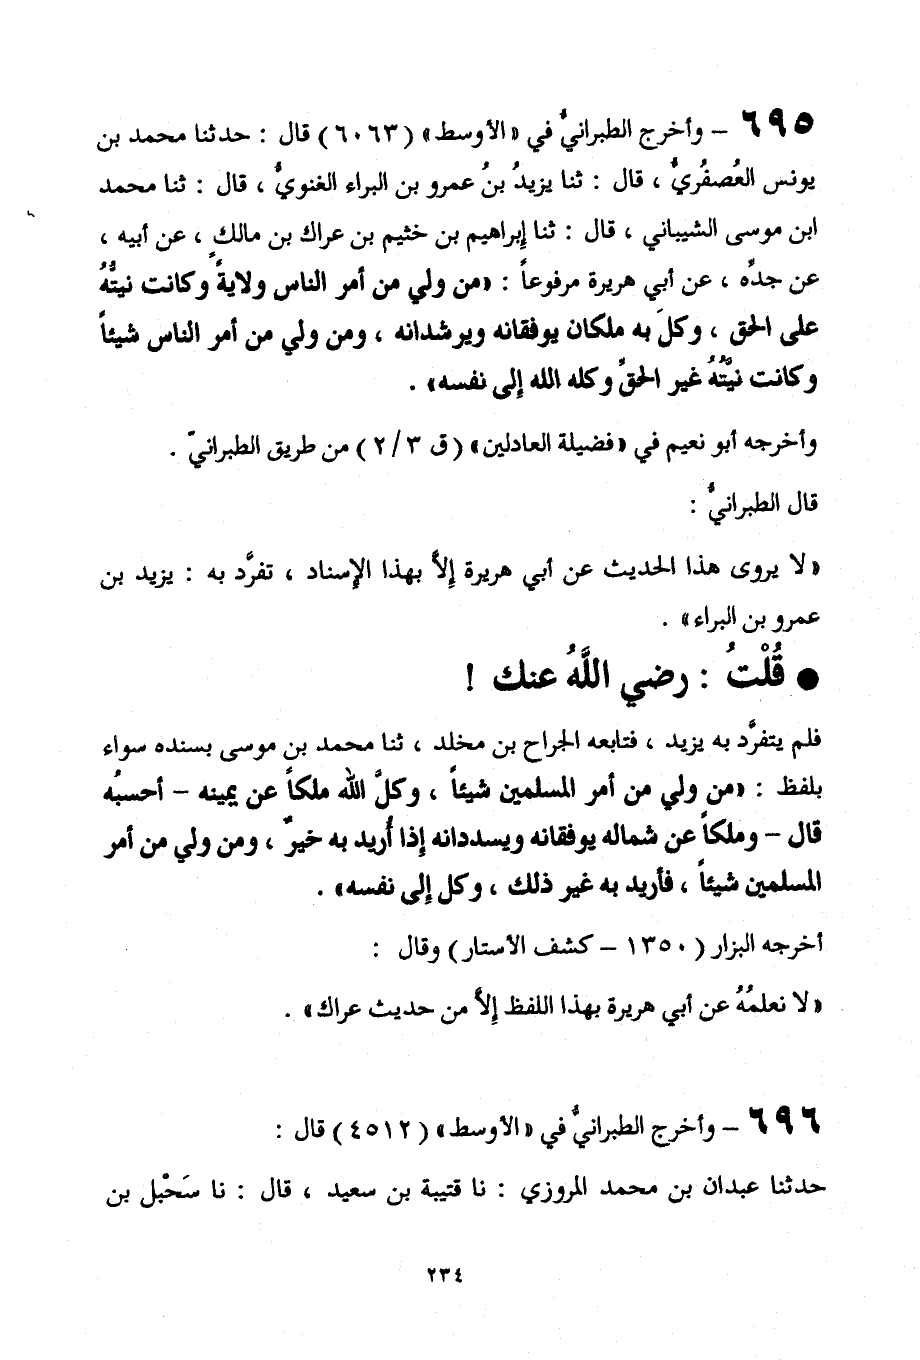 ٦٩٥ – وأخرج الطبرانيُّ في «الأوسط» (٦٠٦٣) قال : حدثنا محمد بن
يونس العُصفُريُّ ، قال : ثنا يزيدُ بنُ عمرو بن البراء الغنويُّ ، قال : ثنا محمد
ابن موسى الشيباني ، قال : ثنا إبراهيم بن خثيم بن عراك بن مالكٍ ، عن أبيه ،
عن جدِّه ، عن أبي هريرة مرفوعاً : «من ولي من أمر الناس ولايةً وكانت نيتُّهُ
على الحق ، وكلَ به ملكان يوفقانه ويرشدانه ، ومن ولي من أمر الناس شيئاً
وكانت نيَّتُهُ غير الحقِّ وكله الله إلى نفسه» .
وأخرجه أبو نعيم في «فضيلة العادلين» (ق ٢/٣) من طريق الطبرانيّ .
قال الطبرانيُّ :
«لا يروى هذا الحديث عن أبي هريرة إلاَّ بهذا الإسناد ، تفرَّد به : يزيد بن
عمرو بن البراء» .
● قُلْتُ : رضي اللَّهُ عنك !
فلم يتفرَّد به يزيد ، فتابعه الجراح بن مخلد ، ثنا محمد بن موسى بسنده سواء
بلفظ : «من ولي من أمر المسلمين شيئاً ، وكلَّ الله ملكاً عن يمينه – أحسبُه
قال – وملكاً عن شماله يوفقانه ويسددانه إذا أُريد به خيرٌ ، ومن ولي من أمر
المسلمين شيئاً ، فأريد به غير ذلك ، وكل إلى نفسه» .
أخرجه البزار (١٣٥٠ – كشف الأستار) وقال :
«لا نعلمُهُ عن أبي هريرة بهذا اللفظ إلاَّ من حديث عراك» .
٦٩٦ – وأخرج الطبرانيُّ في «الأوسط» (٤٥١٢) قال :
حدثنا عبدان بن محمد المروزي : نا قتيبة بن سعيد ، قال : نا سَحْبل بن
٢٣٤